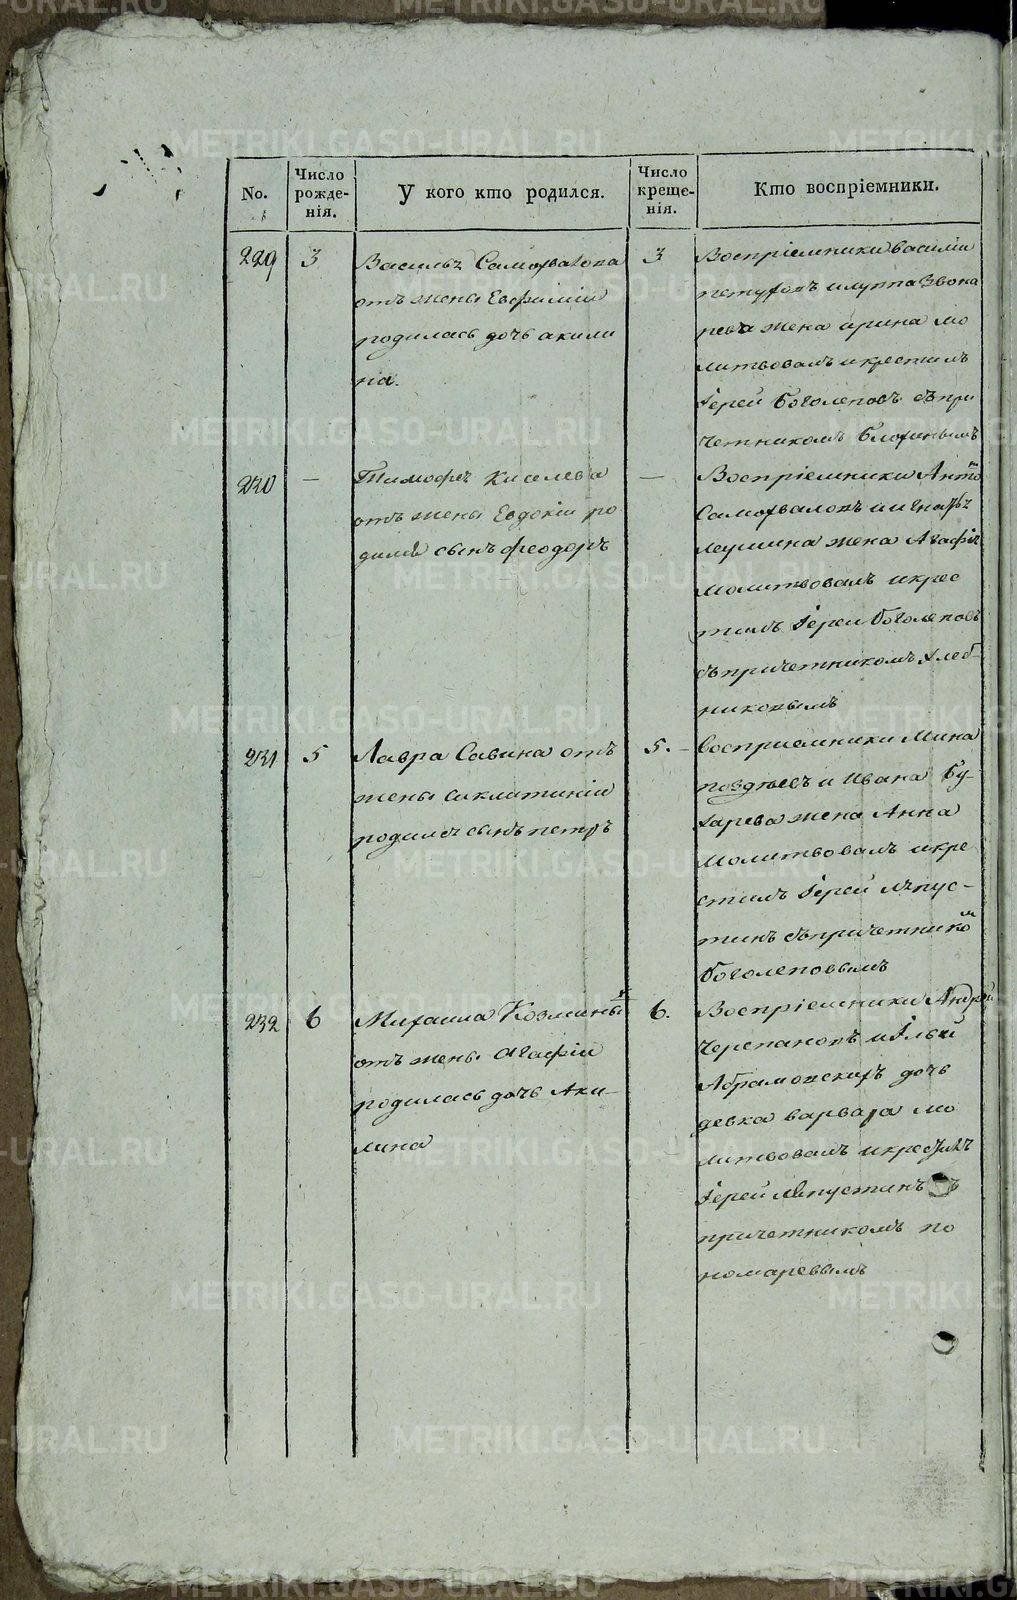 No.
Число рожде-
нія.
У кого кто родился.
Число креще-
нія.
Кто воспріемники.
229
3
Василья Самохвалова
отъ жены Евфиміи
родилась дочь акили
на.
3
Воспріемники василіи
петуховъ илуппа Звона
рева жена ирина мо
литвовалъ икрестилъ
Іерей Боголеповъ съпри
четникомъ
230
—
Тимофея Киселева
отъ жены Евдокіи ро
дился сынъ феодоръ
—
Воспріемники Анто
Самохваловъ и
жена Агафія
молитвовалъ икрес
тилъ Іереи Боголеповъ
съпричетникомъ хлеб-
никовымъ
231
5
Лавра Савина отъ
жены сиклитикіи
родился сынъ петръ
5.
Восприемники Мина
поздѣевъ и Ивана Бу-
гарева жена Анна
Молитвовалъ икре
стилъ Іерей лѣпус-
тинъ съпричетникомъ
Боголеповымъ
232
6
Михаила Козминыхъ
отъ жены Агафіи
родилась дочь Аки-
лина
6.
Воспріемники Андрей
Черепановъ иИльи
Абрамовскихъ дочь
девка варвара мо
литвовалъ икрестилъ
Іерей лѣпустинъ съ
причетникомъ по
номаревымъ
METRIKI.GASO-URAL.RU